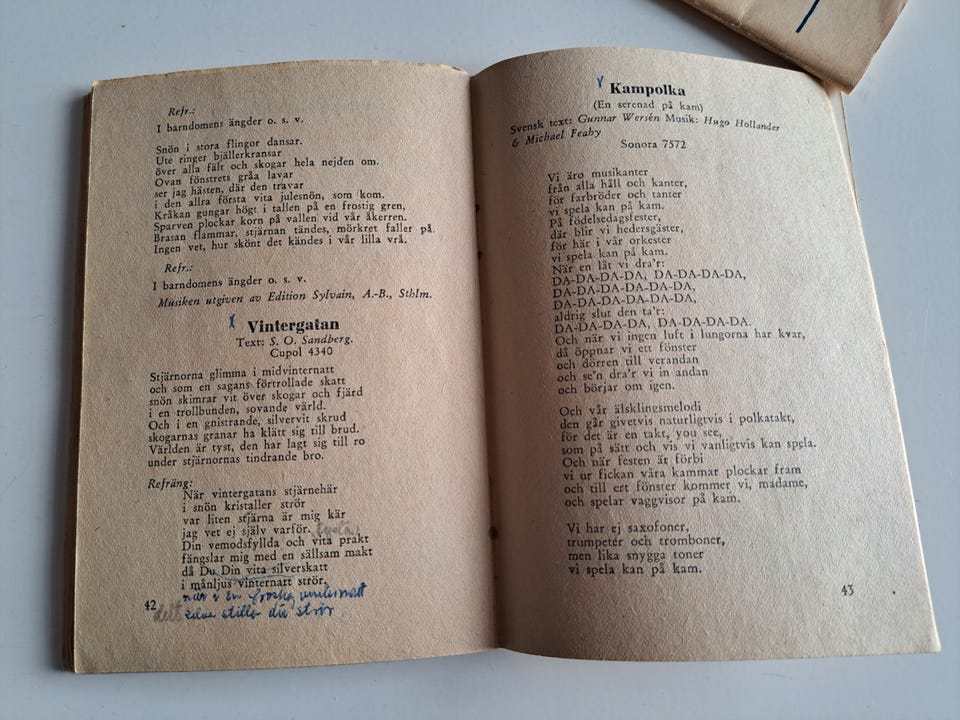 Refr.:
I barndomens ängder o. s. v.
Snön i stora flingor dansar.
Ute ringer bjällerkransar
över alla fält och skogar hela nejden om.
Ovan fönstrets gråa lavar
ser jag hästen, där den travar
i den allra första vita julesnön, som kom.
Kråkan gungar högt i tallen på en frostig gren,
Sparven plockar korn på vallen vid vår åkerren.
Brasan flammar, stjärnan tändes, mörkret faller på.
Ingen vet, hur skönt det kändes i vår lilla vrå.
Refr.:
I barndomens ängder o. s. v.
Musiken utgiven av Edition Sylvain, A.-B., Sthlm.
x Vintergatan
Text: S. O. Sandberg.
Cupol 4340
Stjärnorna glimma i midvinternatt
och som en sagans förtrollade skatt
snön skimrar vit över skogar och fjärd
i en trollbunden, sovande värld.
Och i en gnistrande, silvervit skrud
skogarnas granar ha klätt sig till brud.
Världen är tyst, den har lagt sig till ro
under stjärnornas tindrande bro.
Refräng:
När vintergatans stjärnehär
i snön kristaller strör
var liten stjärna är mig kär
jag vet ej själv varför.
Din vemodsfyllda och vita prakt
fängslar mig med en sällsam makt
då Du Din vita silverskatt
i månljus vinternatt strör,
när i en frostig vinternatt
stilla du strör.
42
x Kampolka
(En serenad på kam)
Svensk text: Gunnar Wersén Musik: Hugo Hollander
& Michael Feahy
Sonora 7572
Vi äro musikanter
från alla håll och kanter,
för farbröder och tanter
vi spela kan på kam.
På födelsedagsfester,
där blir vi hedersgäster,
för här i vår orkester
vi spela kan på kam.
När en låt vi dra'r:
DA-DA-DA-DA, DA-DA-DA-DA,
DA-DA-DA-DA-DA-DA,
DA-DA-DA-DA-DA-DA,
aldrig slut den ta'r:
DA-DA-DA-DA, DA-DA-DA-DA.
Och när vi ingen luft i lungorna har kvar,
då öppnar vi ett fönster
och dörren till verandan
och se'n dra'r vi in andan
och börjar om igen.
Och vår älsklingsmelodi
den går givetvis naturligtvis i polkatakt,
för det är en takt, you see,
som på sätt och vis vi vanligtvis kan spela.
Och när festen är förbi
vi ur fickan våra kammar plockar fram
och till ert fönster kommer vi, madame,
och spelar vaggvisor på kam.
Vi har ej saxofoner,
trumpeter och tromboner,
men lika snygga toner
vi spela kan på kam.
43